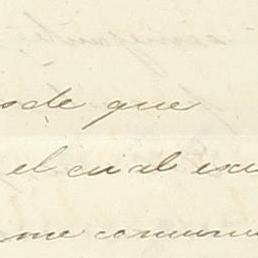 sde que
el cual esc
me comuni